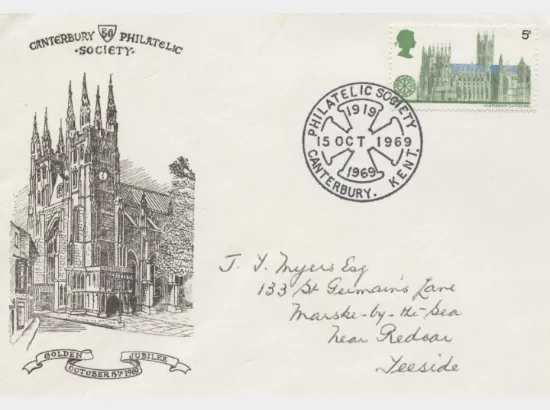 50
CANTERBURY PHILATELIC
·SOCIETY·
5d
CANTERBURY CATHEDRAL
PHILATELIC SOCIETY
1919
15 OCT 1969
1969
CANTERBURY. KENT.
J. Y. Myers Esq
133 St Germain's Lane
Marske-by-the-Sea
Near Redcar
Teeside
GOLDEN JUBILEE
OCTOBER 15TH 1969